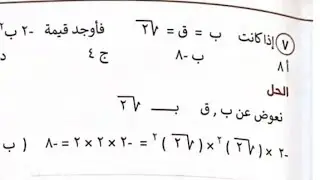 ٧ إذا كانت ب = ق = √٢ فأوجد قيمة -٢ ب٢
أ ٨ ب -٨ ج ٤ د
الحل
نعوض عن ب , ق بـــ √٢
-٢ × (√٢)٢ × (√٢)٢ = -٢ × ٢ × ٢ = -٨ ( ب